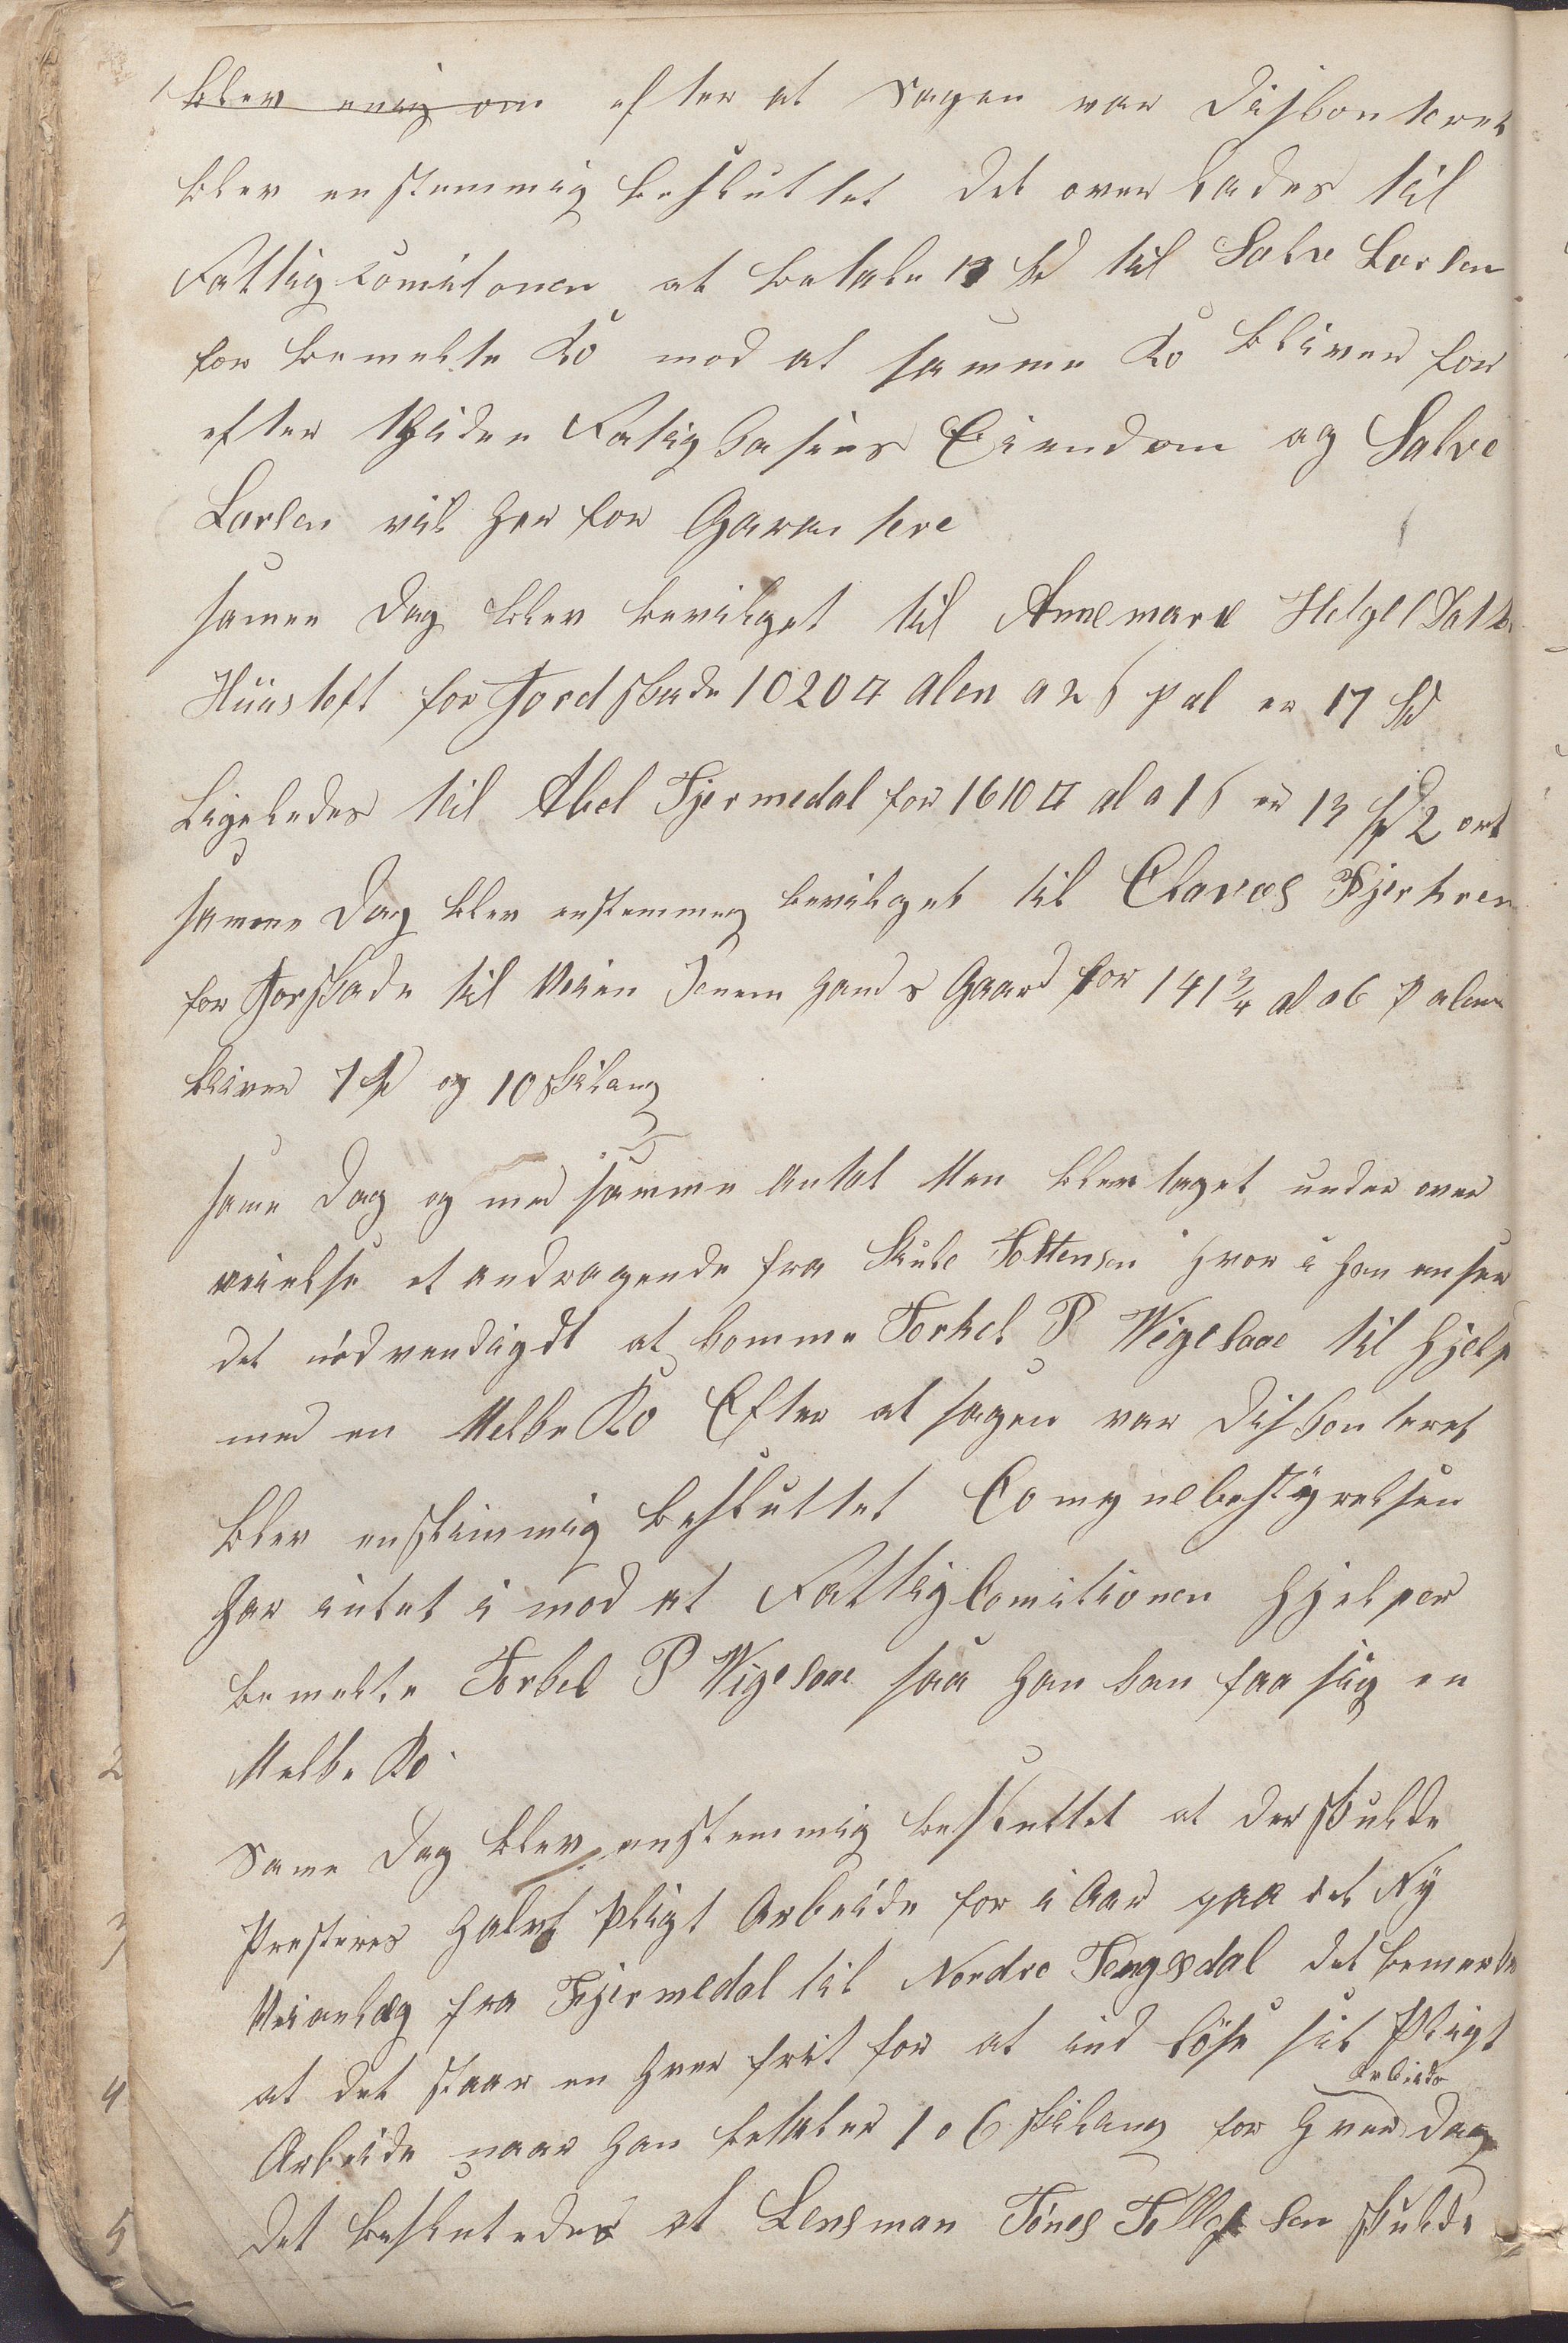 blev enig om efter at Sagen var Diskonteret
blev enstemmig besluttet det over lades til
Fattigkomitonen at betale 13 Sp til Salve Larsen
for bemelte Ko mod at samme Ko bliver for
efter thiden Fatigkasins Eiendom og Salve
Larsen vil her for Garantere
samme Dag blev bevilget til Annemare Helgesdatter
for Jordskade 1020 □ alen a 2 s p al er 17 Sp
Ligeledes til Abel Fjermedal for 1610 □ al a 1 s er 13 Sp 2 ort
samme Dag blev enstemmig bevilget til
for Jorskade til Veien Jenem hands Gaard for 141 3/4 al a 6 s alen
bliver 7 Sp og 10 skilang
same Dag og med samme antal Men blev taget under over
veielse et andragende fra Tottensen hvor i han anser
det nødvendigdt at komme Torkel P Wigesaae til Hjelp
med en Melke Ko Efter at sagen var Diskonteret
blev enstimmig besluttet Comynebestyrelsen
har intet i mod at Fattigkomitionen hjelper
bemelte Torkel P Wigesaae saa han kan faa sig en
Melke Ko
Same Dag blev enstemmig besluttet at der skulde
Presteres halvt Pligt Arbeide for i Aar paa det Ny
Veianlæg fra Fjermedal til Nordre Tengesdal det bemerkes
at det staar en hver frit for at ind løse sit Pligt
Arbeide naar han betaler 1 o 6 skilang for hver arbeids Dag
det beslutedes at Lensman Tønes sen skulde
2
3
4
5